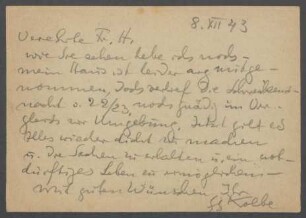 8. XII 43
Verehrte Fr. H.
wie Sie sehen lebe ich noch –
mein Haus ist leider arg mitge-
nommen, doch verlief die Schreckens-
nacht v. 22/23 noch gnädig im Ver-
gleich zur Umgebung. Jetzt gilt es
Alles wieder dicht zu machen
u. die Sachen zu erhalten u. ein noth-
dürftiges Leben zu ermöglichen –
mit guten Wünschen Ihr
Kolbe